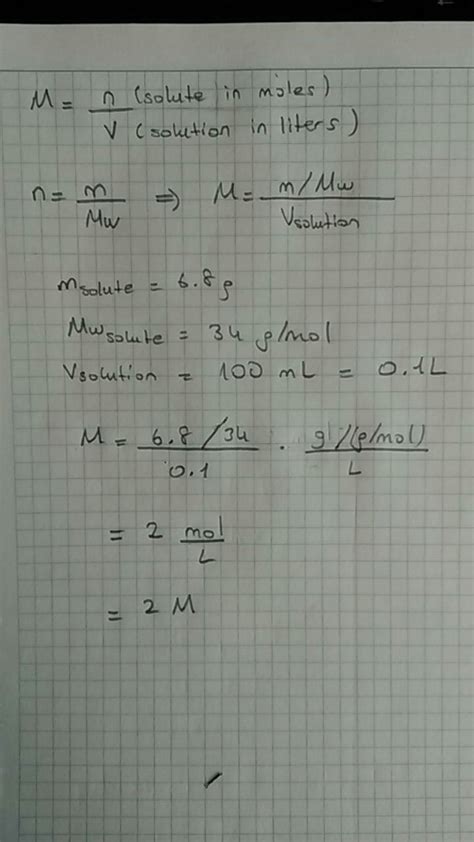 M = n (solute in moles) / V (solution in liters)
n = m / Mw ⇒ M = m/Mw / Vsolution
msolute = 6.8g
Mwsolute = 34 g/mol
Vsolution = 100 mL = 0.1L
M = 6.8/34 / 0.1 . g/(g/mol) / L
= 2 mol / L
= 2 M